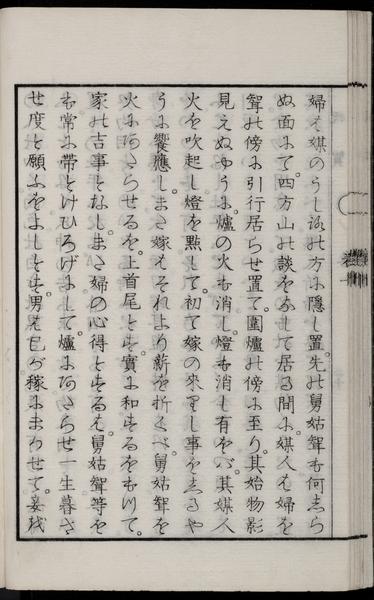 婦も媒のうしろの方に隠し置。先の舅姑聟も何志ら
ぬ面にて。四方山の談をなして居る間に媒人も婦を
聟の傍に引行居らせ置て。圍爐の傍に至り。其始物影
見えぬやうに。爐の火も消し。燈も消し有を。バ其媒人
火を吹起し燈を點して。初て嫁の來りし事を志るや
うに饗應しまさ嫁もそれより薪を折くべ。舅姑聟を
火にあたらせるを。上首尾とす。實に和するをもつて。
家の古事となし。まさ婦の心得とするも。舅姑聟等を
も常に帶とけひろげにして。爐にあたらせ一生暮さ
せ度と願ふをよしとす。男も己が稼にまかせて。妾我